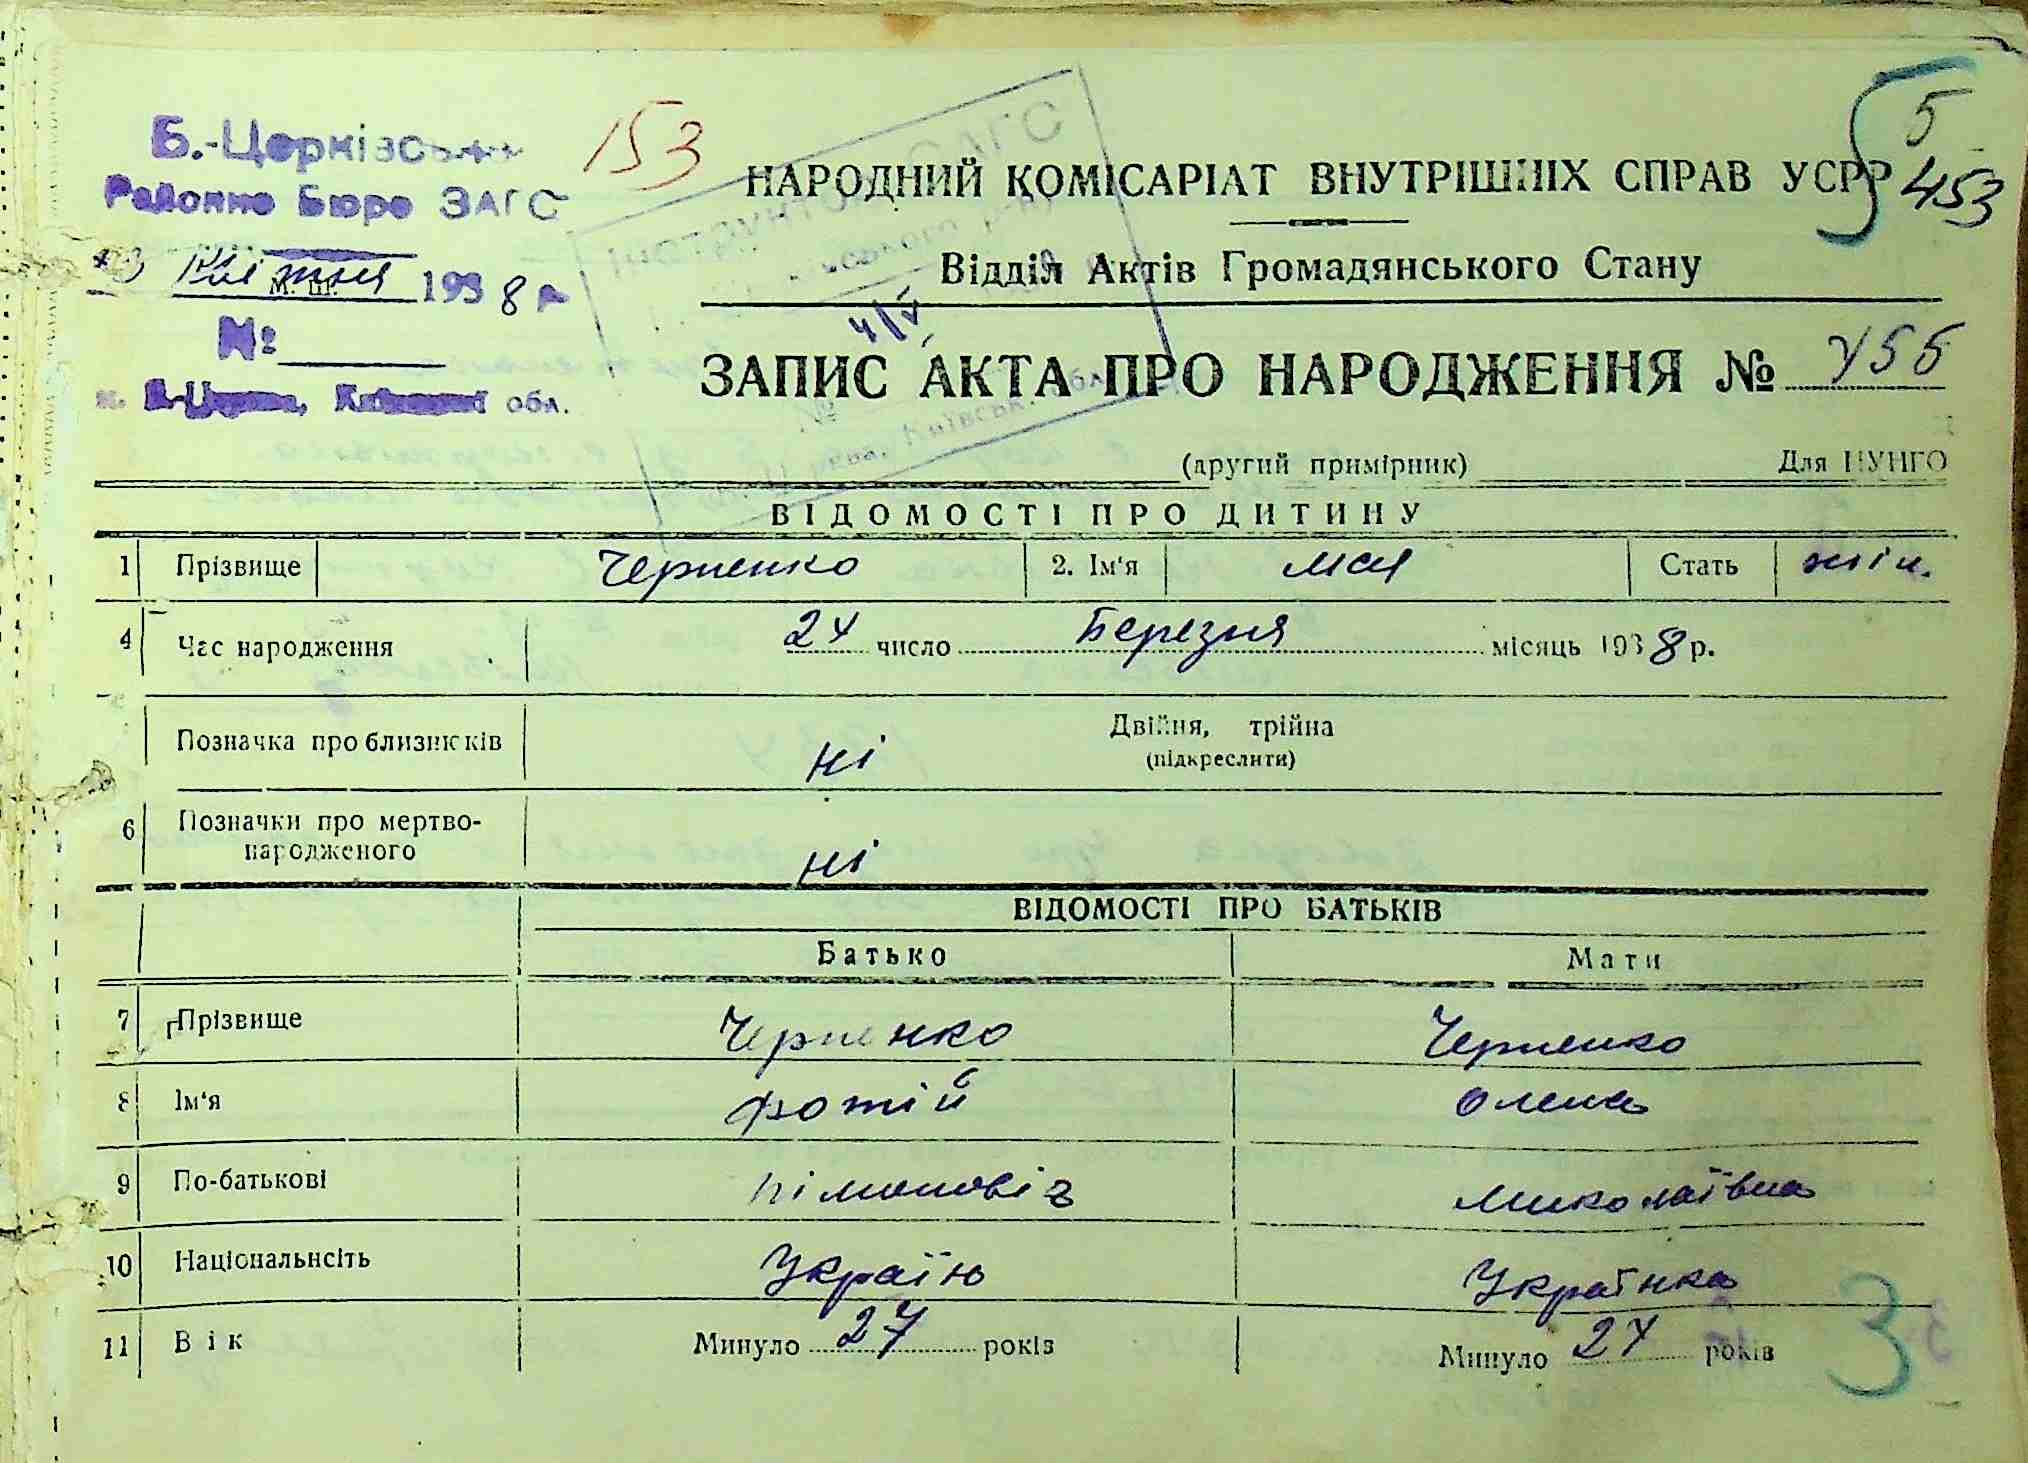 Б.-Церківськ
Районне Бюро ЗАГС
3 Квітня 1938 р
№
м. Б-Церква, Київської обл.
153
5
453
НАРОДНИЙ КОМІСАРІАТ ВНУТРІШНІХ СПРАВ УСРР
Відділ Актів Громадянського Стану
4/IV
ЗАПИС АКТА ПРО НАРОДЖЕННЯ № 455
(другий примірник) Для НУНГО
ВІДОМОСТІ ПРО ДИТИНУ
1 Прізвище Черненко 2. Ім'я Мая Стать жін.
4 Час народження 24 число Березня місяць 1938 р.
Позначка про близнюків ні Двійня, трійна
(підкреслити)
6 Позначки про мертво-
народженого ні
ВІДОМОСТІ ПРО БАТЬКІВ
Батько Мати
7 Прізвище Черненко Черненко
8 Ім'я Фотій Олена
9 По-батькові Пімонович Миколаївна
10 Національнсіть Україн Українка
11 Вік Минуло 27 років Минуло 24 років
3